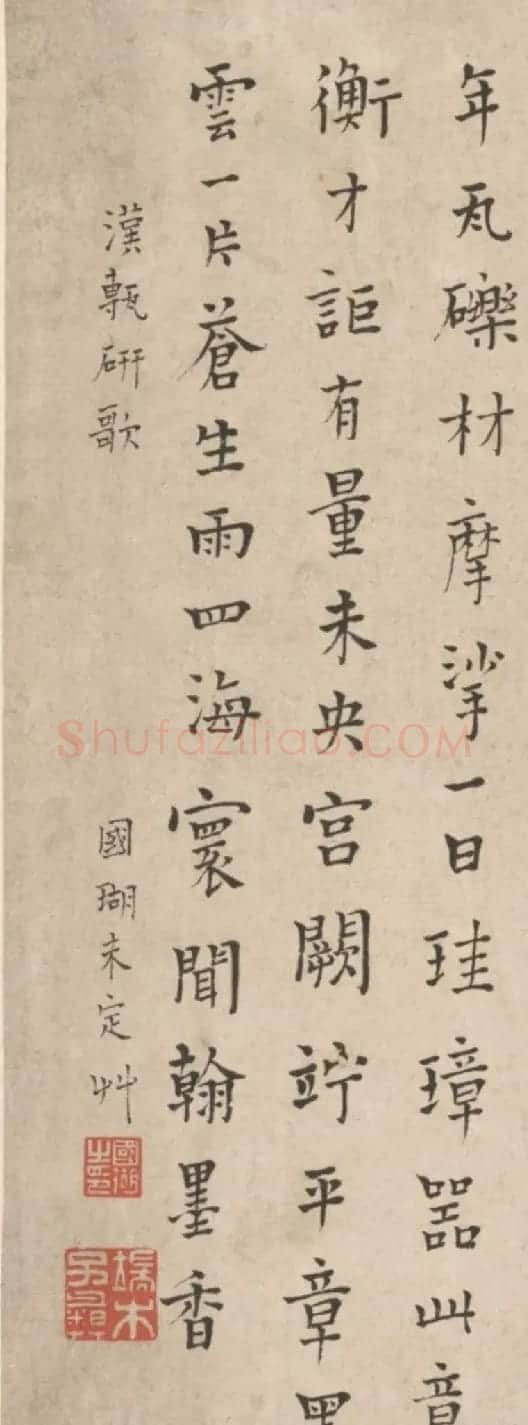 年瓦礫材摩挲一日珪璋器
衡才詎有量未央宮闕竚平章
雲一片蒼生雨四海寰聞翰墨香
漢甎研歌
國瑚未定艸
國瑚之印
端木
Shufaziliao.COM